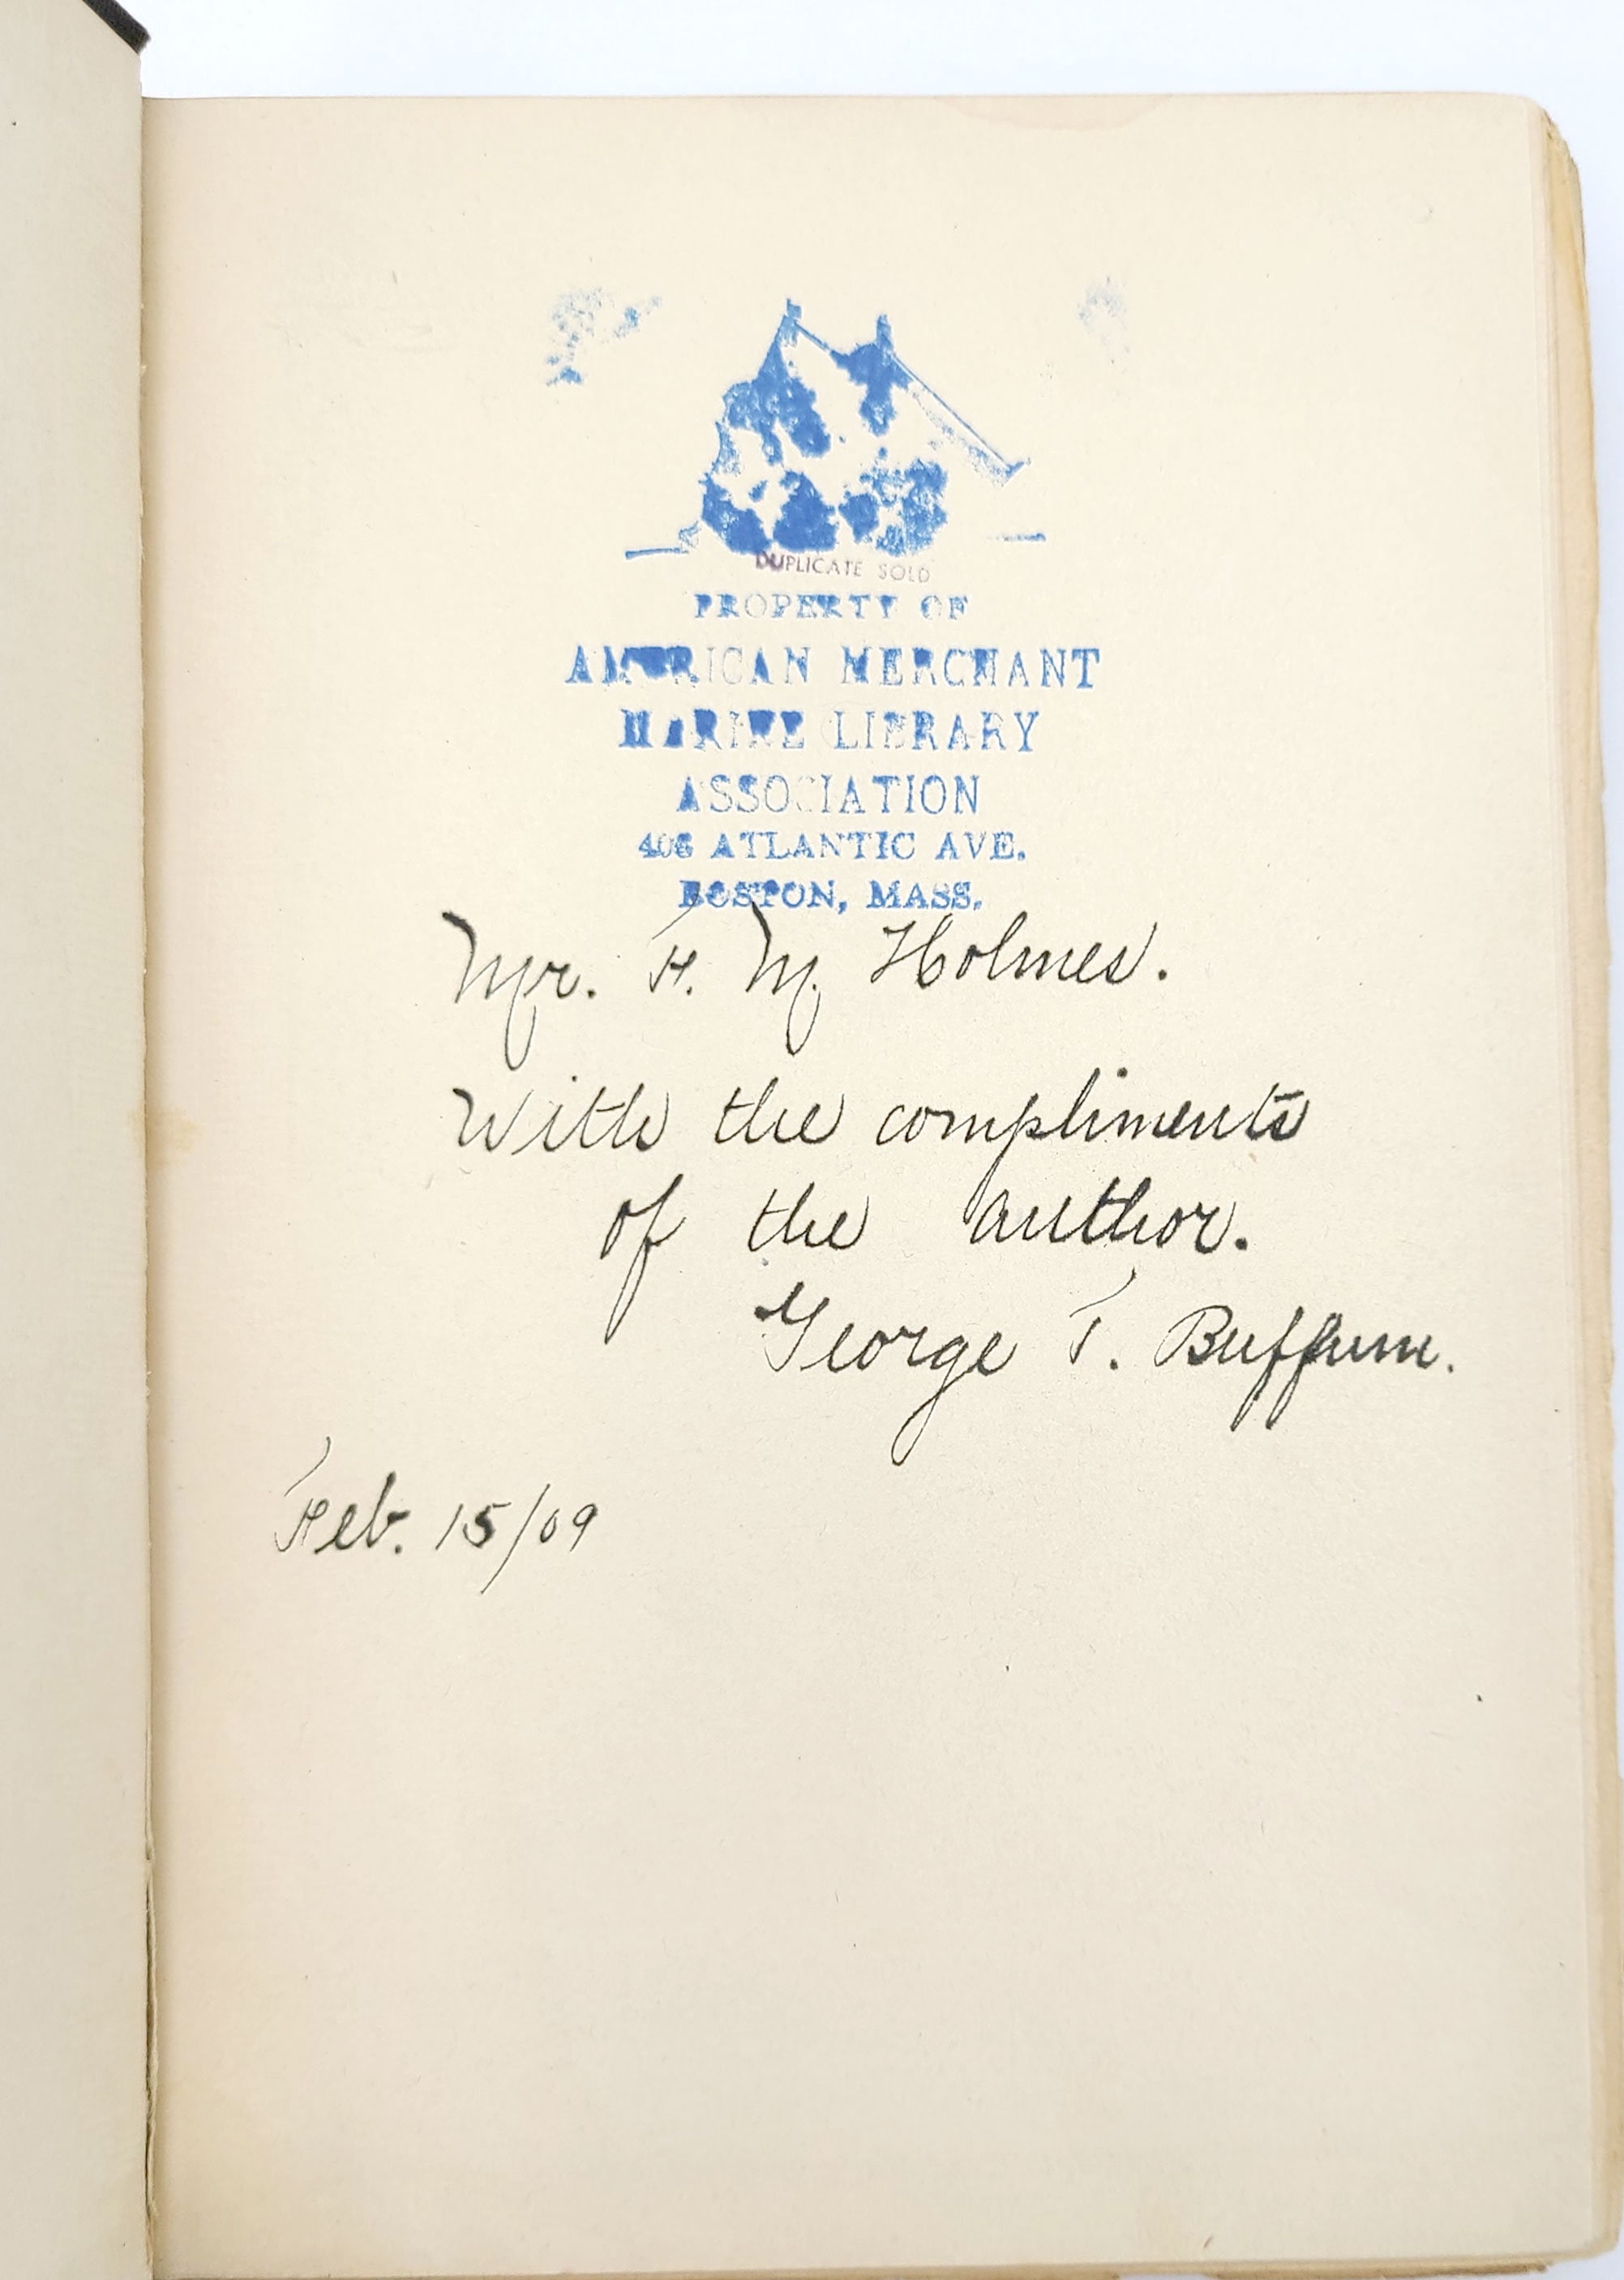 DUPLICATE SOLD
PROPERTY OF
AMERICAN MERCHANT
MARINE LIBRARY
ASSOCIATION
406 ATLANTIC AVE.
BOSTON, MASS.
Mr. F. M. Holmes.
With the compliments
of the author.
George T. Buffum.
Feb. 15/09